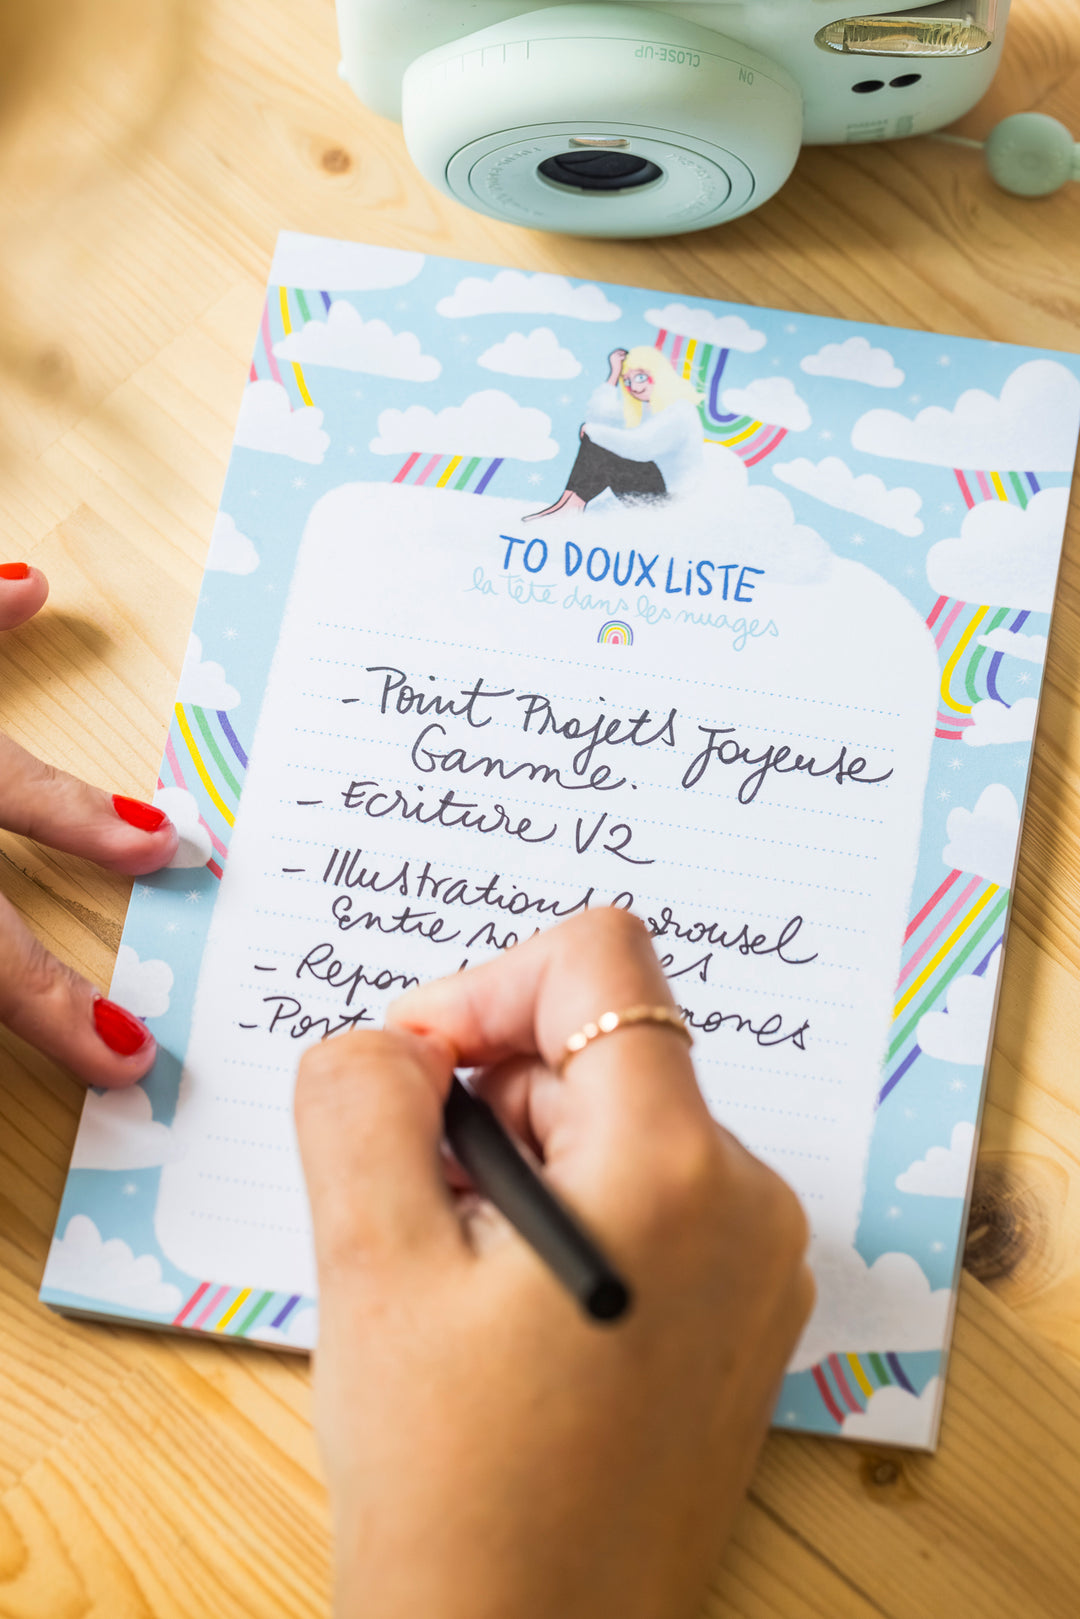 CLOSE-UP
ON
TO DOUX LiSTE
la tête dans les nuages
- Point Projets Joyeuse
Ganme.
- Ecriture V2
- Illustrations Carrousel
Entre
- Repon
- Post